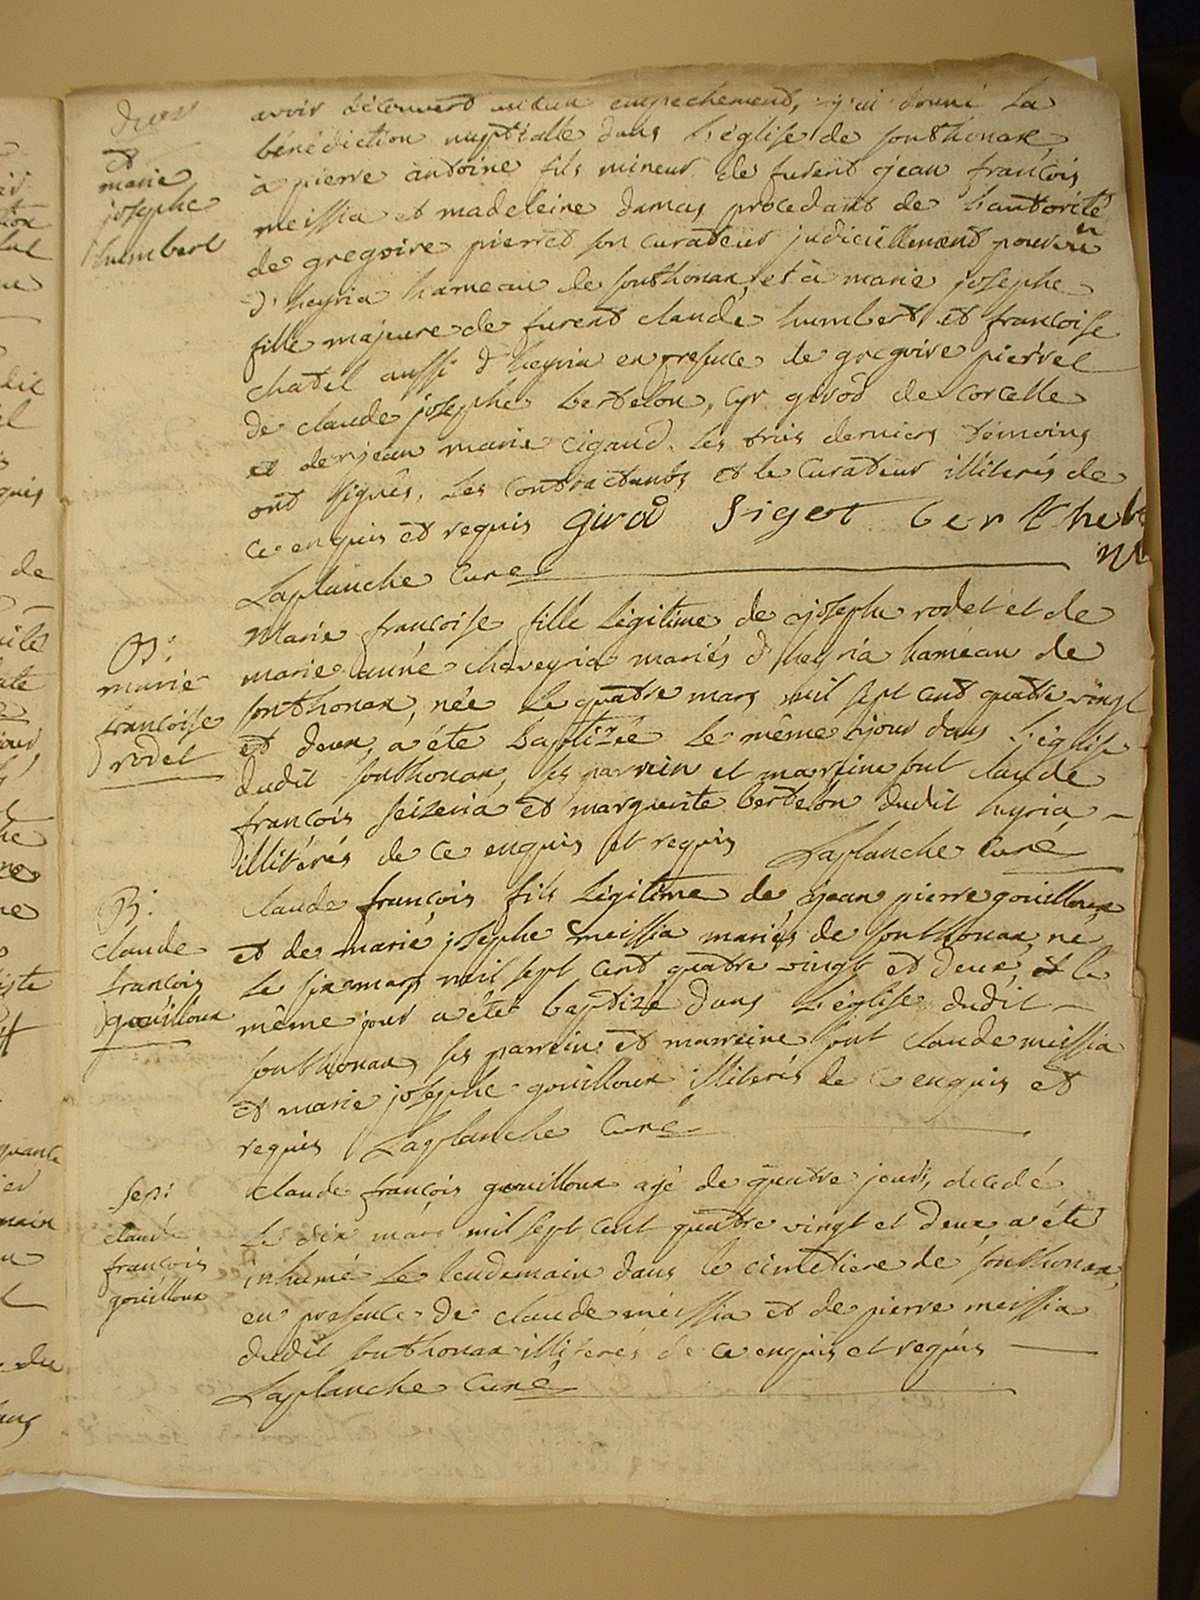 et
marie
josephe
humbert
avoir découvert aucun empechement, j'ai donné la
bénédiction nuptialle dans l'église de sonthonax
à pierre antoine fils mineur de furent jean francois
meissia et madeleine damas procedant de l'autorité
de gregoire pierret son curateur judiciellement pourvu
d'heyria hameau de sonthonax et à marie josephe
fille majeure de furent claude humbert et francoise
chatel aussi d'heyria en presence de gregoire pierret
de claude josephe bertelon, cyr girod de corcelle
et de jean marie cigaud. les trois derniers témoins
ont signés. les contractants et le curateur illiterés de
ce enquis et requis girod sigot berthe
Laplanche Curé
B:
marie
francoise
rodet
Marie françoise fille légitime de josephe rodet et de
marie anne chaveyria mariés d'heyria hameau de
sonthonax, née le quatre mars mil sept cent quatre vingt
et deux, a été baptizée le même jour dans l'église
dudit sonthonax, ses parrein et marreine sont claude
françois seizeria et marguerite bertelon dudit heyria
illitérés de ce enquis et requis Laplanche Curé
B:
claude
francois
gouilloux
claude françois fils légitime de jean pierre gouilloux
et de marie josephe meissia mariés de sonthonax, né
le six mars mil sept cent quatre vingt et deux, et le
même jour a été baptizé dans l'église dudit
sonthonax, ses parrein et marreine sont claude meissia
et marie josephe gouilloux illiterés de ce enquis et
requis Laplanche Curé
Sep:
claude
francois
gouilloux
claude françois gouilloux agé de quatre jours, decedé
le dix mars mil sept cent quatre vingt et deux a été
inhumé le lendemain dans le cimetiere de sonthonax,
en presence de claude meissia et de pierre meissia
dudit sonthonax illiterés de ce enquis et requis
Laplanche Curé